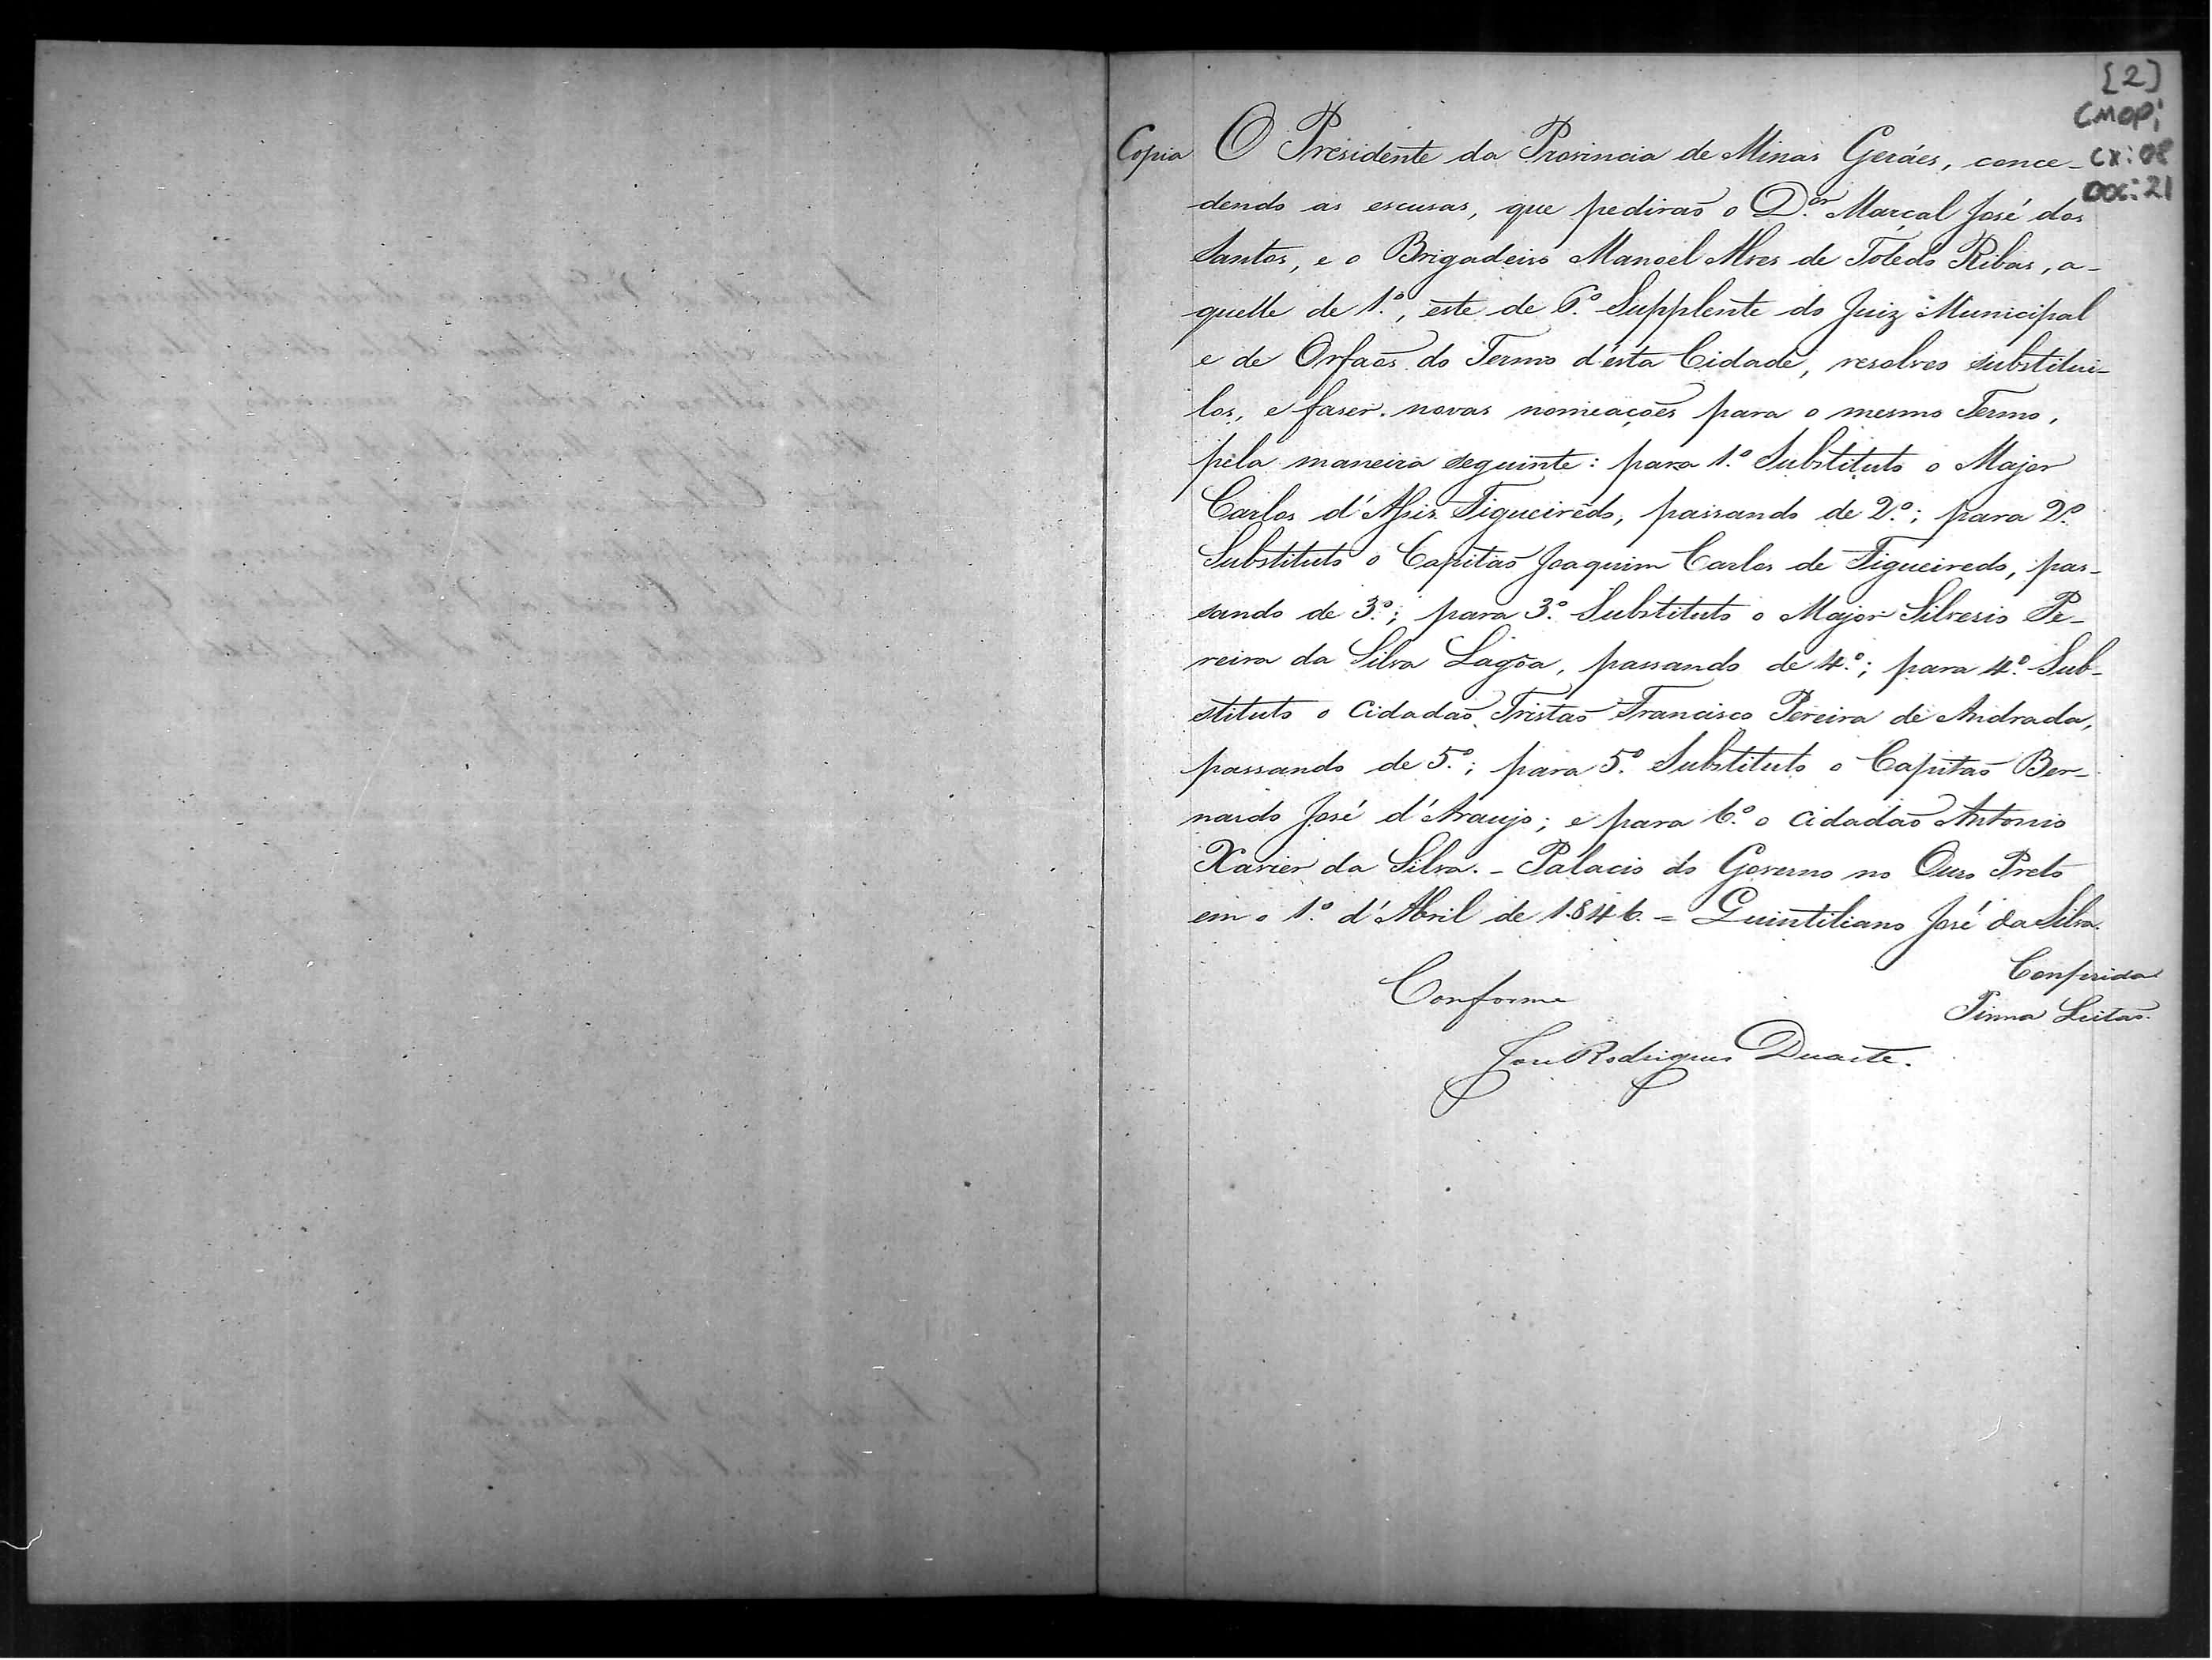 [2]
CMOPi
cx: 08
DOC: 21
Copia O Presidente da Provincia de Minas Geráes, conce-
dendo as escusas, que pedirão o D.or Marçal José dos
Santos, e o Brigadeiro Manoel Alves de Toledo Ribas, a-
quelle de 1.º, este de 6.º Supplente do Juiz Municipal
e de Orfaõs do Termo d'esta Cidade, resolveo substitui-
los, e faser novas nomeações para o mesmo Termo,
pela maneira seguinte: para 1.º Substituto o Major
Carlos d'Assis Figueirêdo, passando de 2.º; para 2.º
Substituto o Capitaõ Joaquim Carlos de Figueiredo, pas-
sando de 3.º; para 3.º Substituto o Major Silverio Pe-
reira da Silva Lagôa, passando de 4.º; para 4.º Sub-
stituto o Cidadaõ Tristaõ Francisco Pereira de Andrada,
passando de 5.º; para 5.º Substituto o Capitaõ Ber-
nardo José d'Araujo; e para 6.º o Cidadaõ Antonio
Xavier da Silva. - Palacio do Governo no Ouro Preto
em o 1.º d'Abril de 1846. = Quintiliano José da Silva.
Conferida
Conforme
Pinna Leitaõ.
José Rodrigues Duarte.